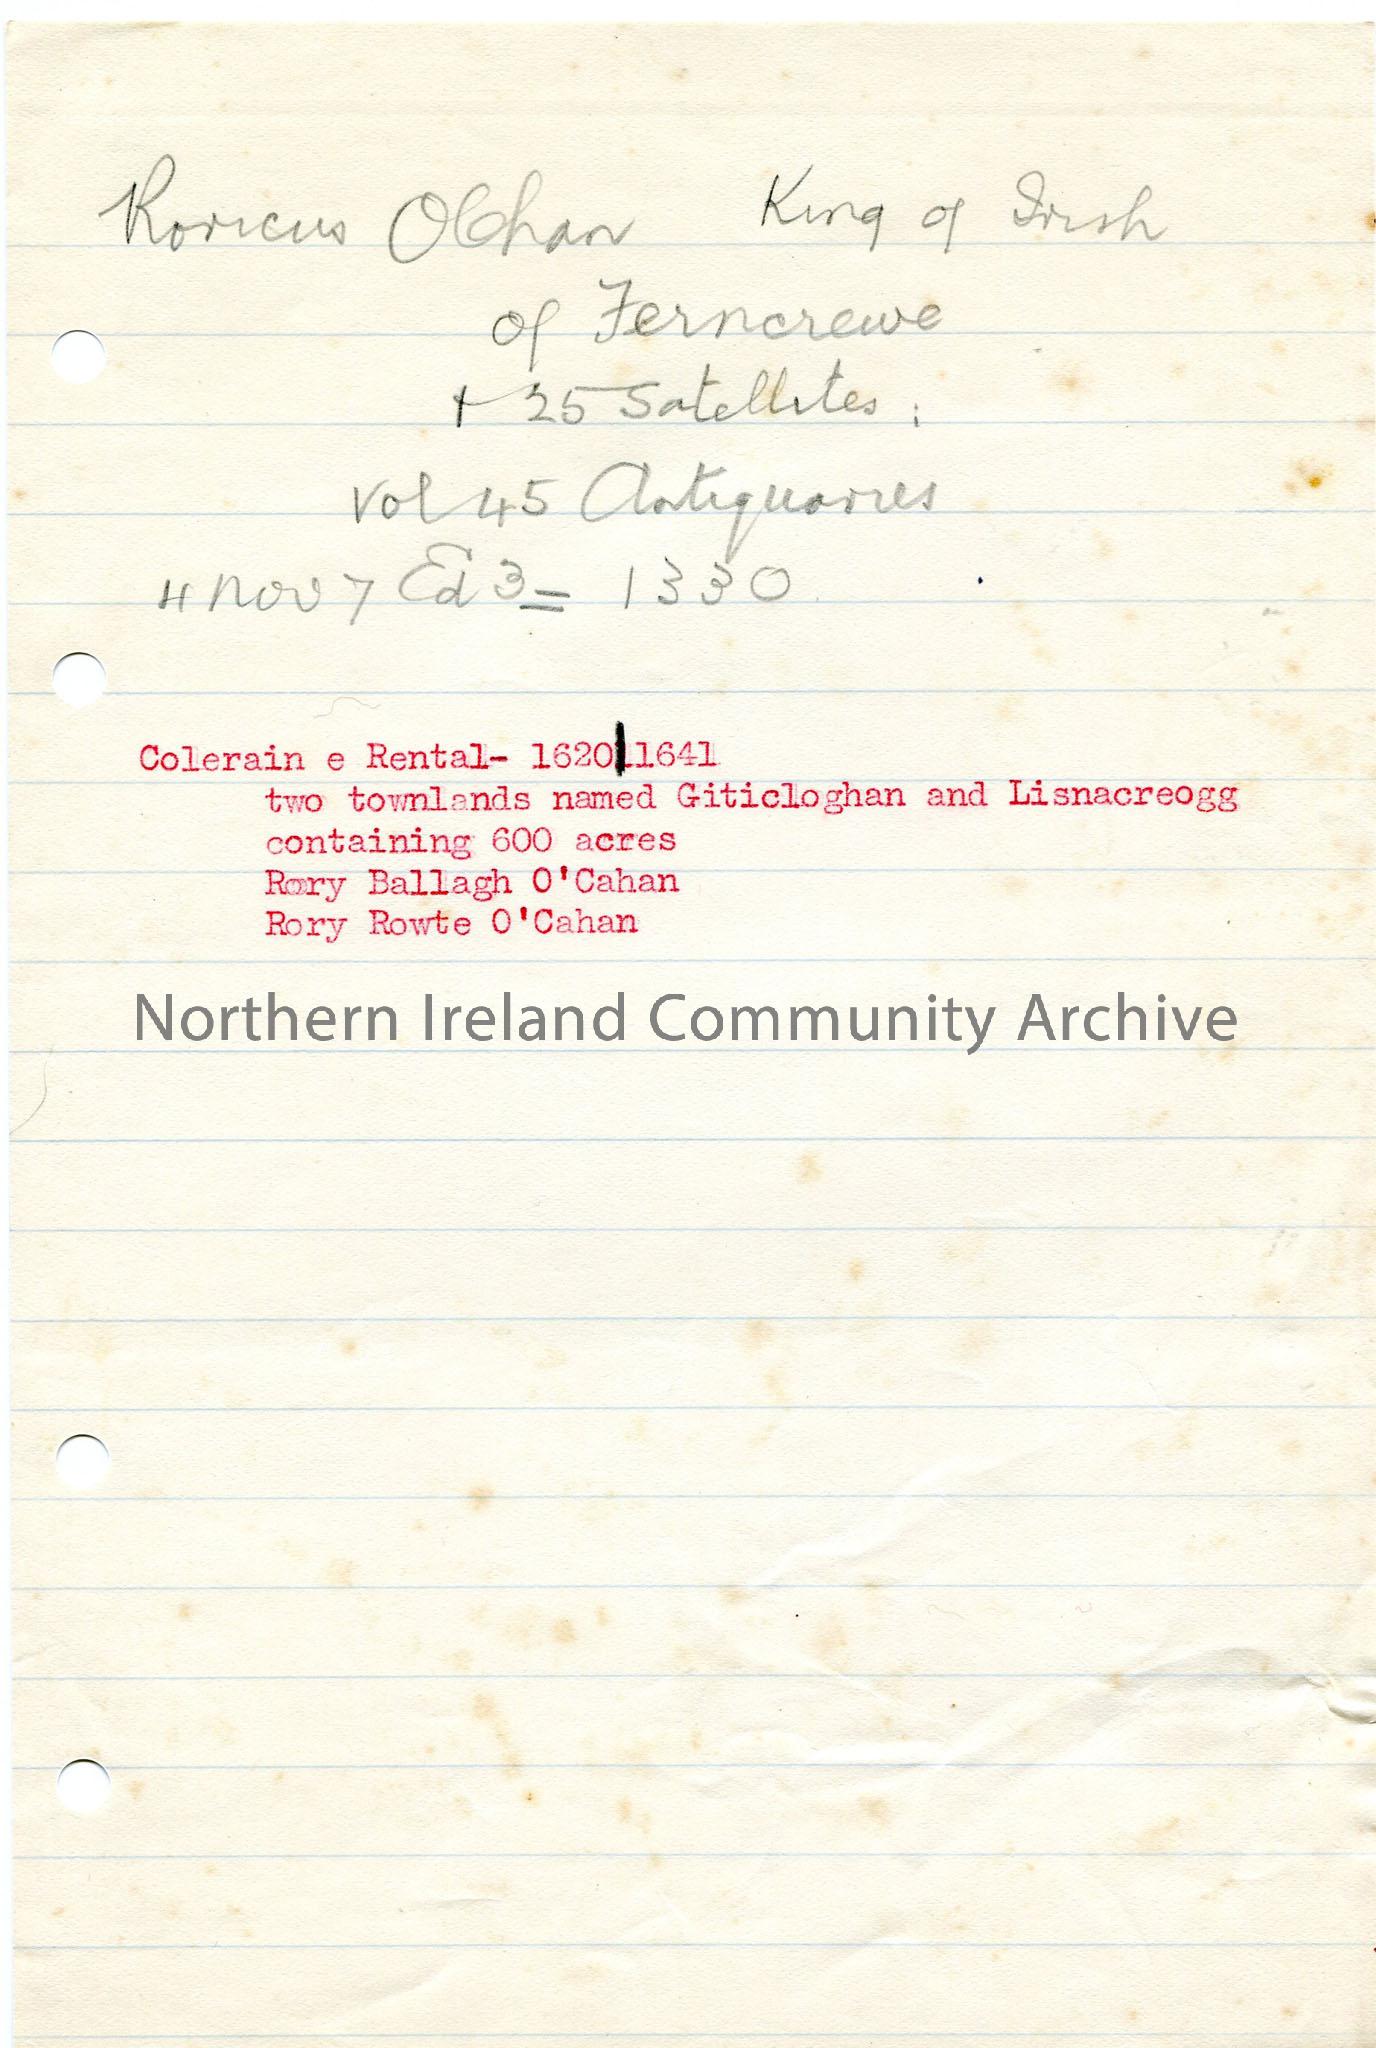 Roricus OChan King of Irish
of Ferncrewe
+ 25 Satellites;
Vol 45 Antiquaries
4 Nov 7 Ed 3 = 1330
Colerain e Rental- 1620 1641
two townlands named Giticloghan and Lisnacreogg
containing 600 acres
Rory Ballagh O'Cahan
Rory Rowte O'Cahan
Northern Ireland Community Archive